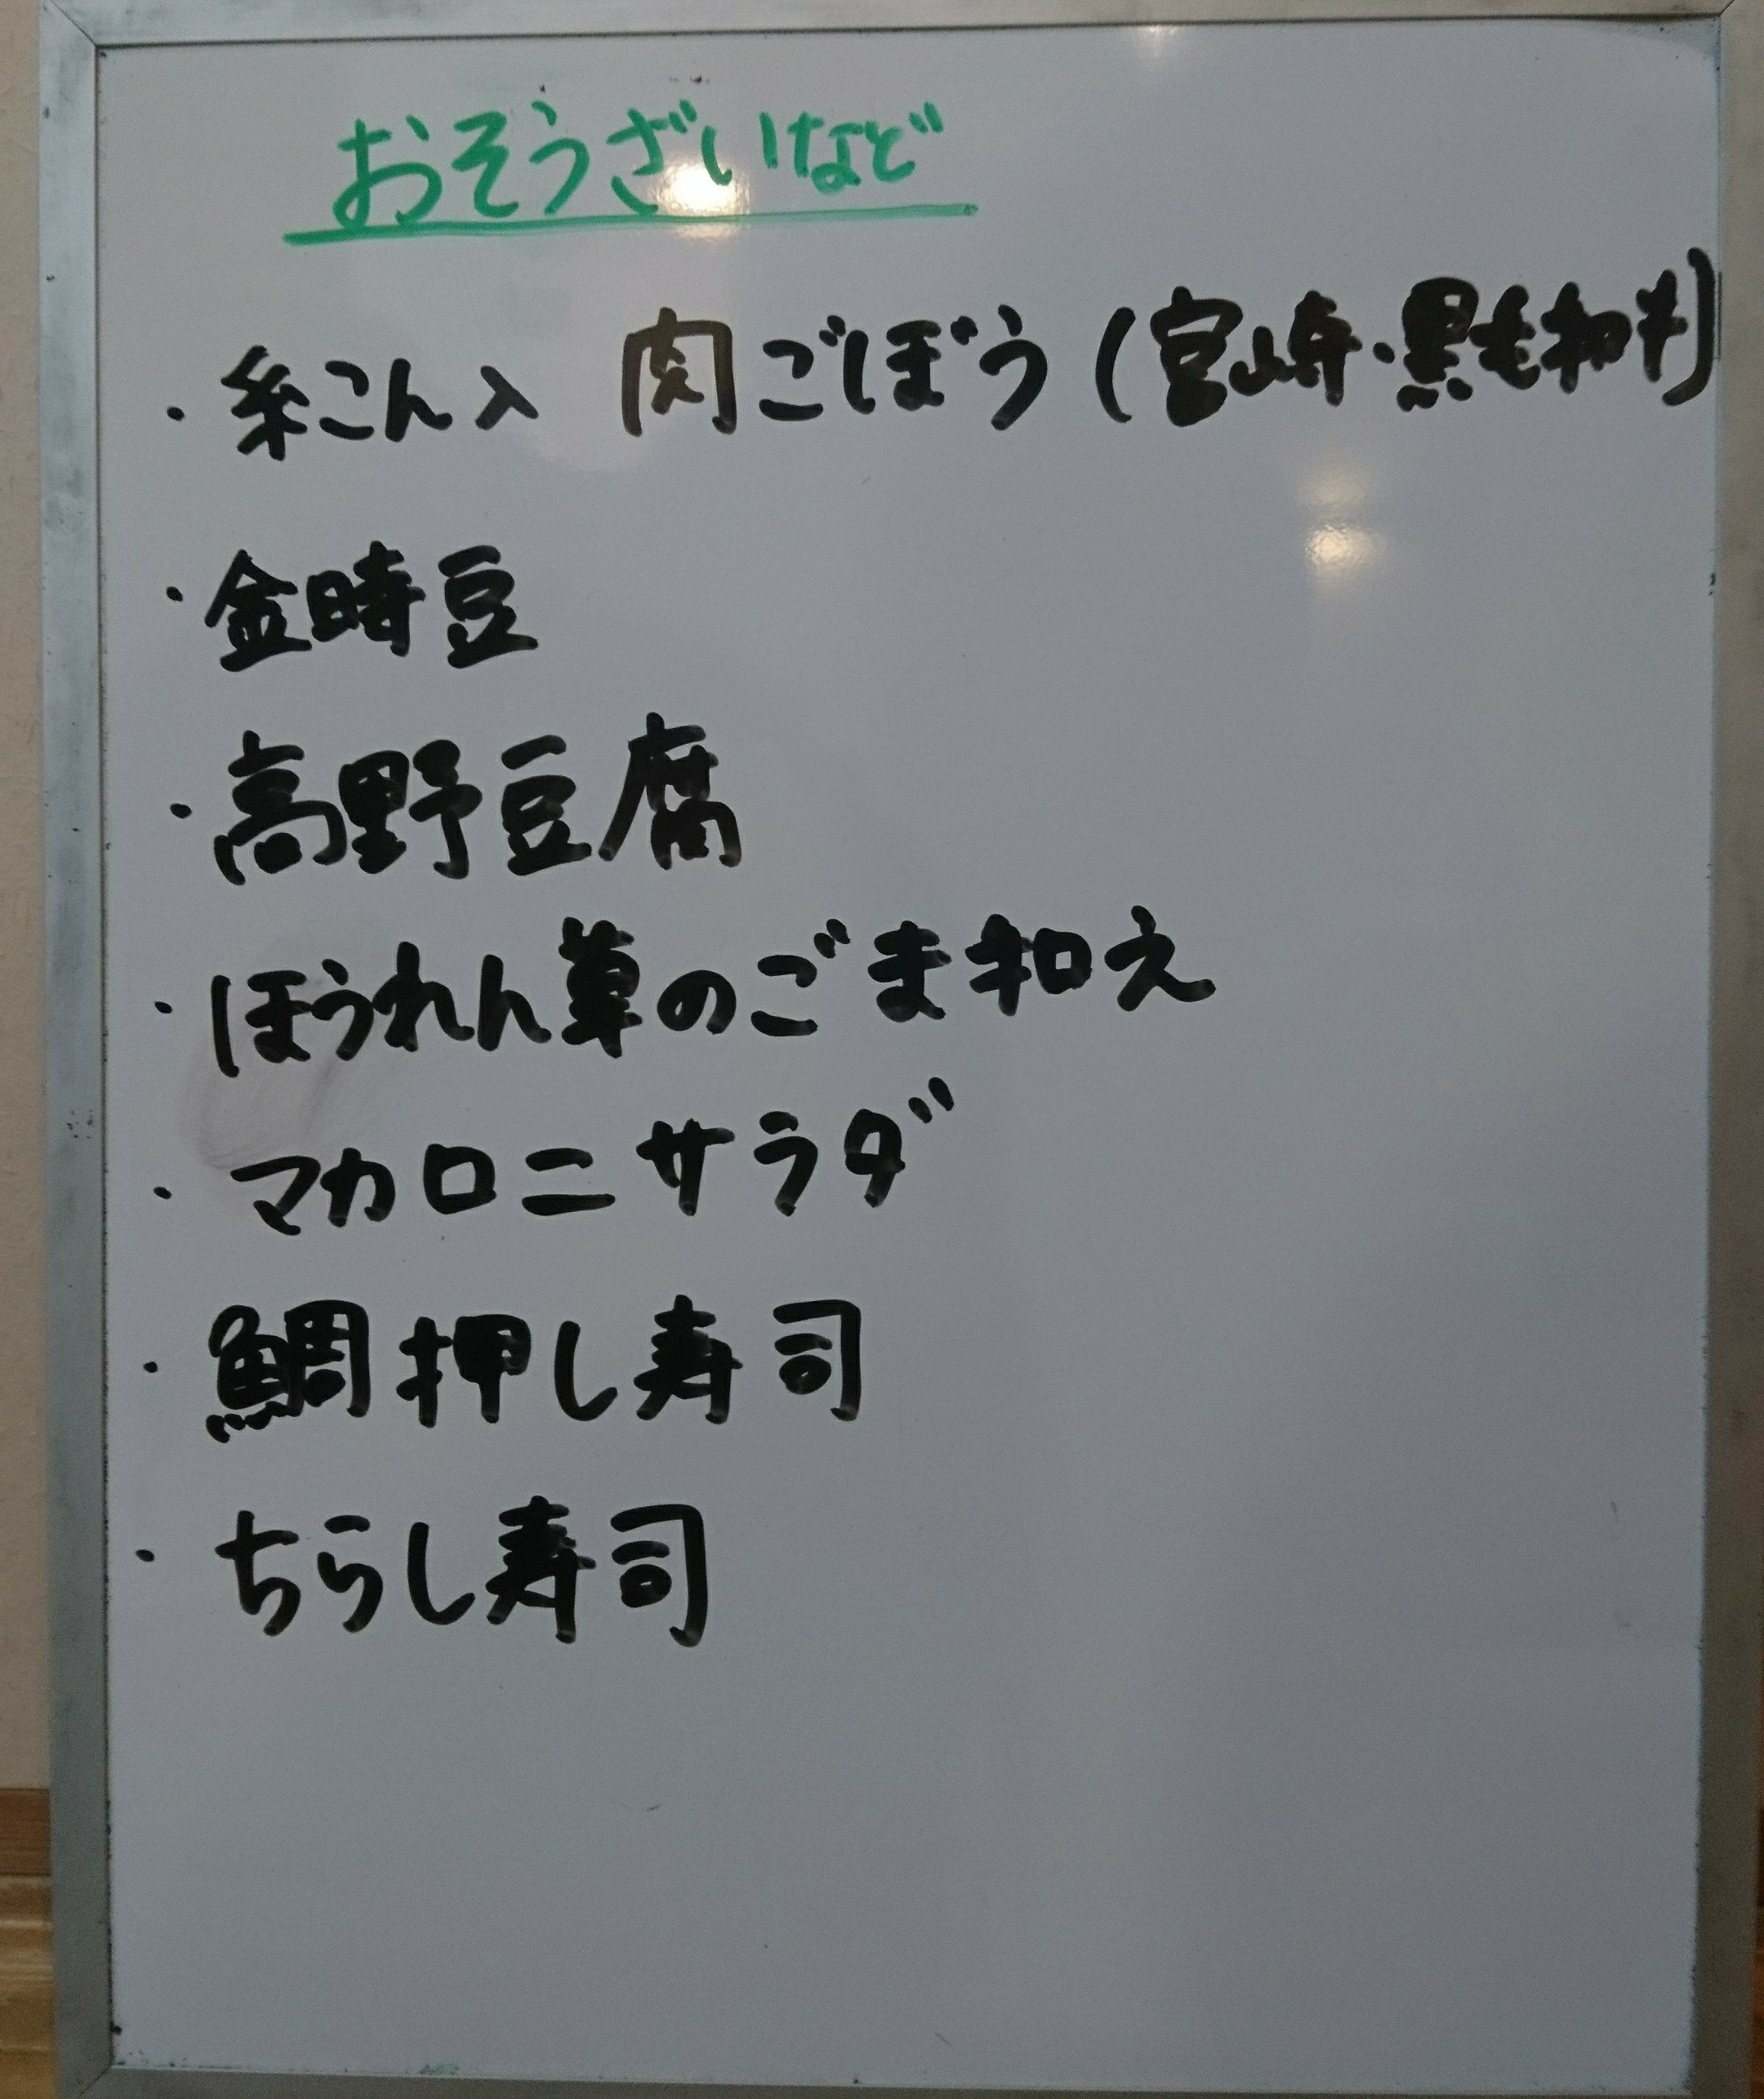 おそうざいなど
・糸こん入 肉ごぼう(宮崎・黒毛和牛)
・金時豆
・高野豆腐
・ほうれん草のごま和え
・マカロニサラダ
・鯛押し寿司
・ちらし寿司